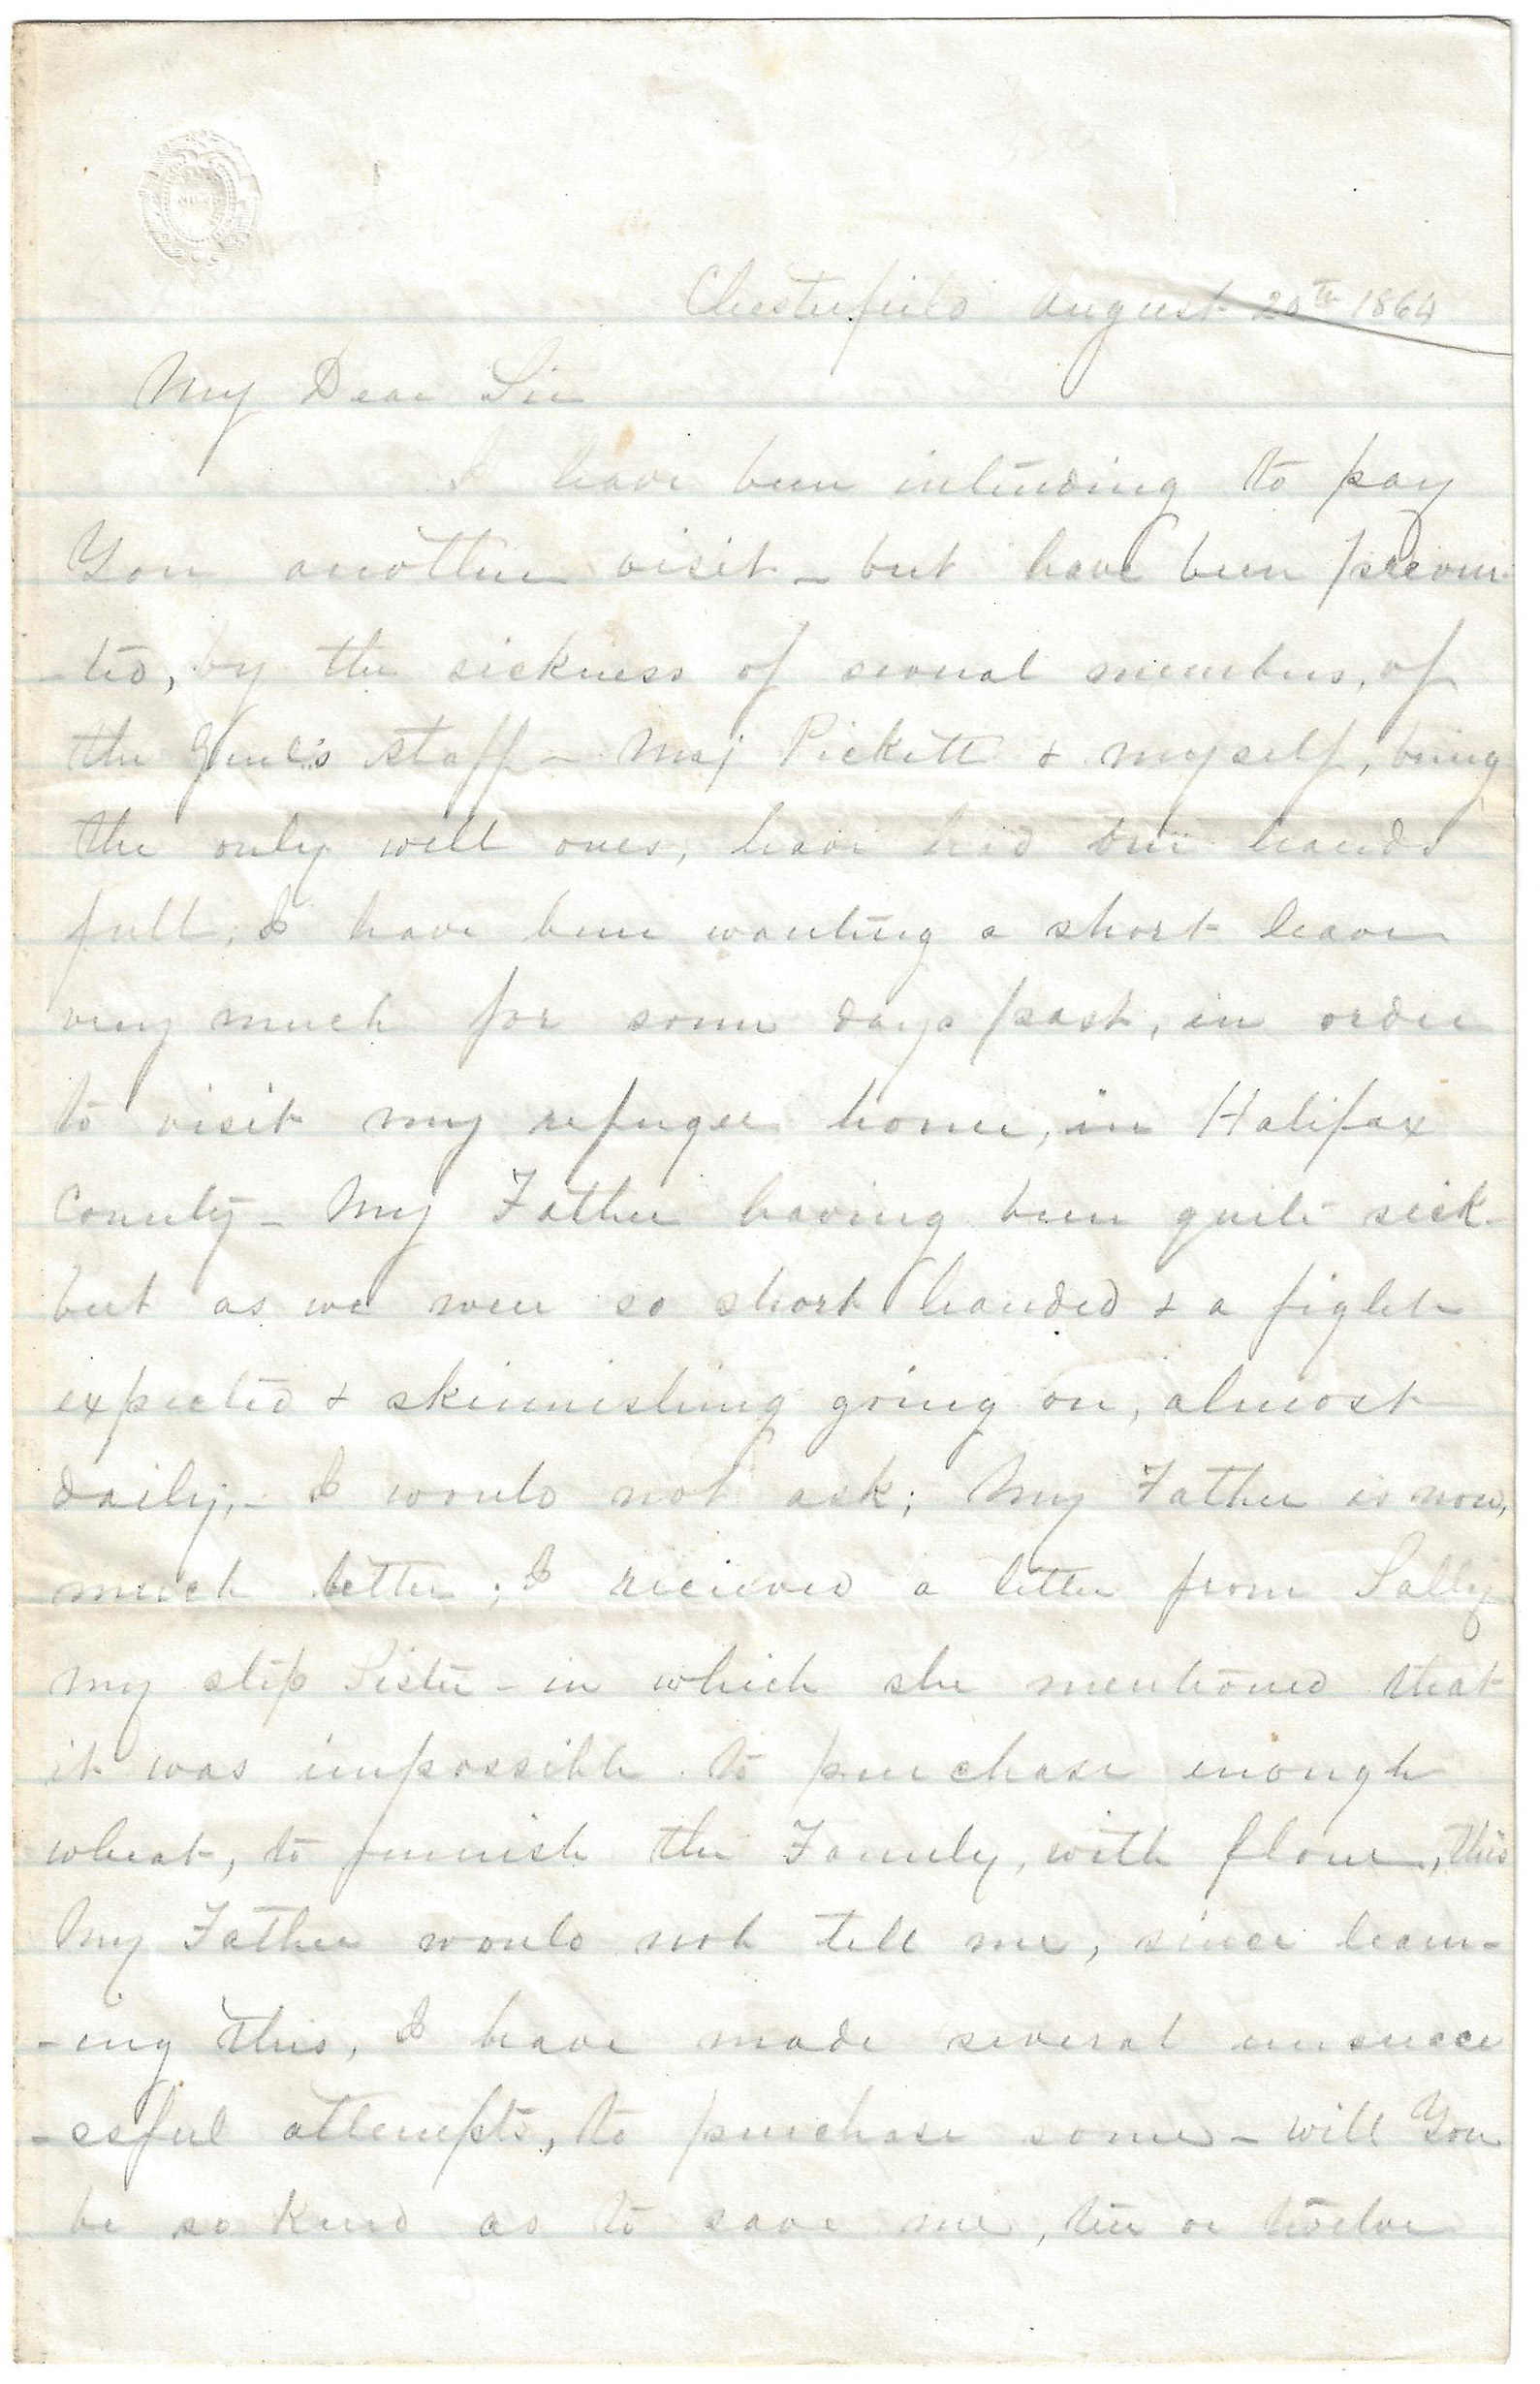 Chesterfield August 20th 1864
My Dear Sir
I have been intending to pay
You another visit - but have been preven-
-ted, by the sickness of several members, of
the Genl's staff - Maj Pickett & myself, being
the only well ones, have had our hands
full; I have been wanting a short leave
very much for some days past, in order
to visit my refugee home, in Halifax
County - My Father having been quite sick -
but as we were so short handed & a fight
expected & skirmishing going on, almost
daily, - I would not ask; My Father is now,
much better; I recieved a letter from Sally
my step Sister - in which she mentioned that
it was impossible to purchase enough
wheat, to furnish the Family, with flour, this
My Father would not tell me, since learn-
-ing this, I have made several unsucce
-ssful attempts, to purchase some - will You
be so kind as to save me, ten or twelve